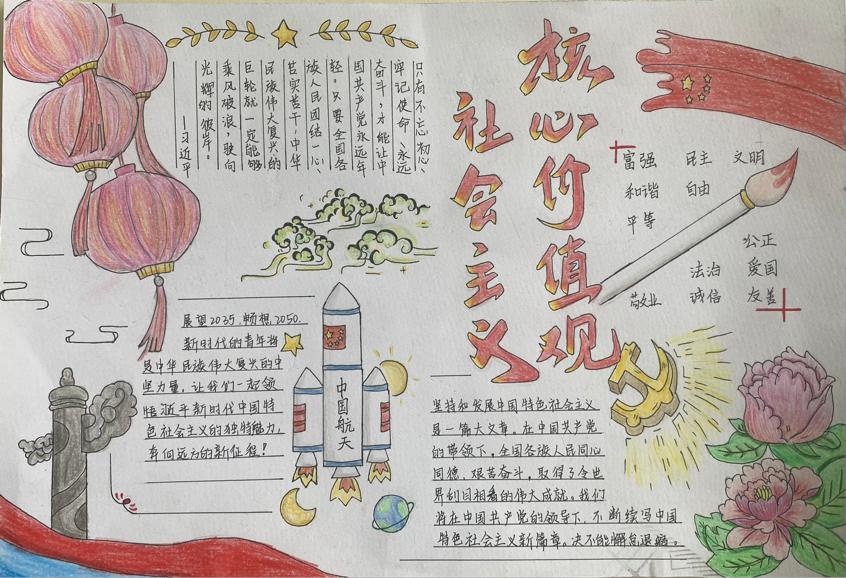 社会主义
核心价值观
只有不忘初心、
牢记使命、永远
奋斗，才能让中
国共产党永远年
轻。只要全国各
族人民团结一心、
苦实苦干，中华
民族伟大复兴的
巨轮就一定能够
乘风破浪，驶向
光辉的彼岸。
——习近平
富强 民主 文明
和谐 自由
平等
公正
法治 爱国
敬业 诚信 友善
展望2035，畅想2050.
新时代的青年将
是中华民族伟大复兴的中
坚力量，让我们一起领
悟新时代中国特
色社会主义的独特魅力，
奔向远方的新征程！
中国航天
坚持和发展中国特色社会主义
是一篇大文章。在中国共产党
的带领下，全国各族人民同心
同德、艰苦奋斗，取得了令世
界刮目相看的伟大成就。我们
将在中国共产党的领导下，不断续写中国
特色社会主义新篇章。决不能懈怠退缩。